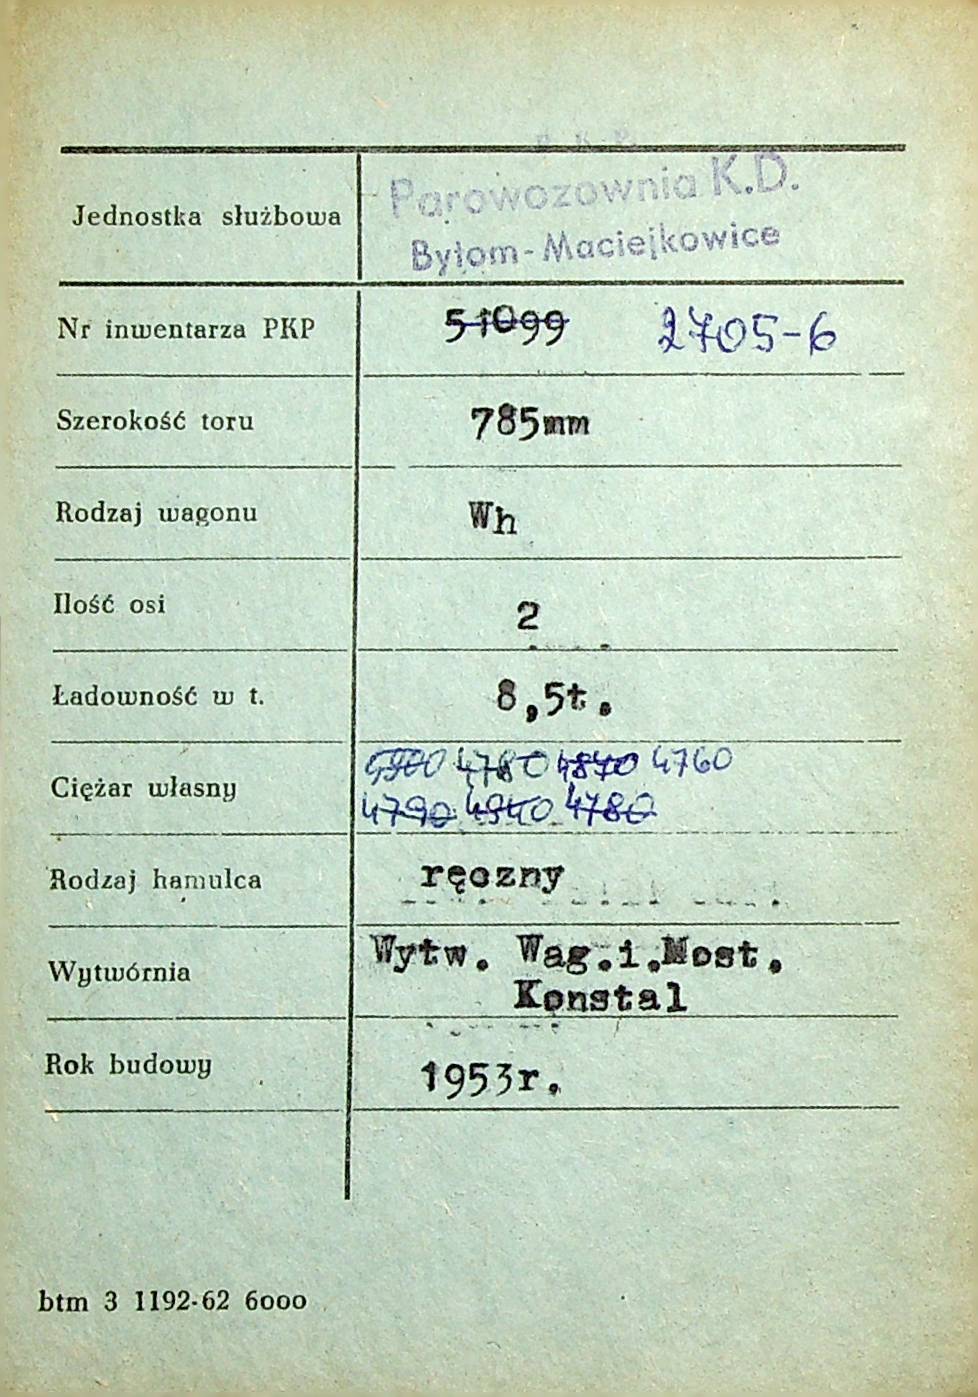 P. K. P.
Parowozownia K.D.
Jednostka służbowa
Bytom-Maciejkowice
Nr inwentarza PKP 51099 2705-6
Szerokość toru 785mm
Rodzaj wagonu Wh
Ilość osi 2
Ładowność w t. 8,5t.
4780 4840 4760
Ciężar własny
4790 4940 4780
Rodzaj hamulca ręczny
Wytw. Wag.i.Most.
Wytwórnia
Konstal
Rok budowy 1953r.
btm 3 1192-62 6000